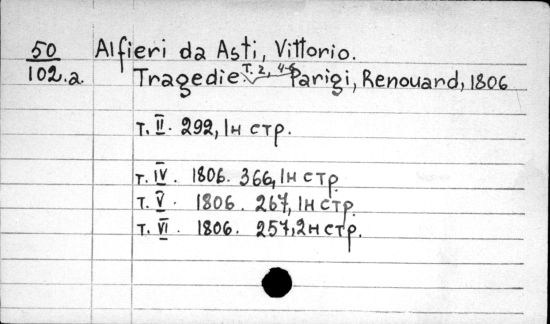 50
102.a.
Alfieri da Asti, Vittorio.
Tragedie. т. 2, 4-6 Parigi, Renouard, 1806
т. II. 292, 1н стр.
т. IV. 1806. 366, 1н стр.
т. V. 1806. 267, 1н стр.
т. VI. 1806. 257, 2н стр.